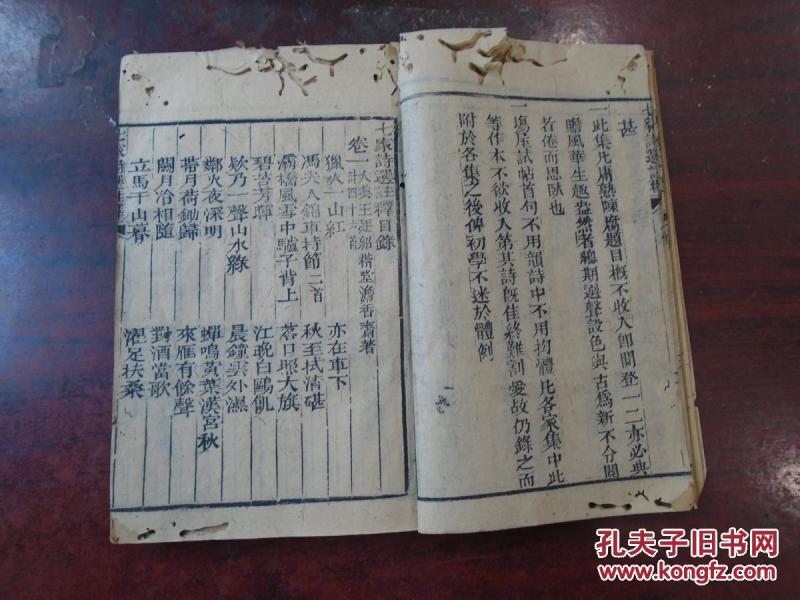 甚
一此集凡庸熟陳腐題目概不收入卽間登一二亦必典
贍風華生趣盎然者總期選聲設色與古爲新不令閱
者倦而思臥也
一塲屋試帖首句不用韻詩中不用拗體凡各家集中此
等作本不欲收入第其詩旣佳終難割愛故仍錄之而
附於各集之後俾初學不迷於體例
七家詩選註釋目錄
卷一
王廷紹楷堂澹香齋著
獵火一山紅
亦在車下
馮夫人錦車持節二首
秋至拭清砧
灞橋風雪中驢子背上
落日照大旗
碧苔芳暉
江晚白鷗飢
欸乃一聲山水綠
晨鐘雲外濕
鄰火夜深明
蟬鳴黃葉漢宮秋
帶月荷鋤歸
來雁有餘聲
關月冷相隨
對酒當歌
立馬千山暮
濯足扶桑
孔夫子旧书网
www.kongfz.com